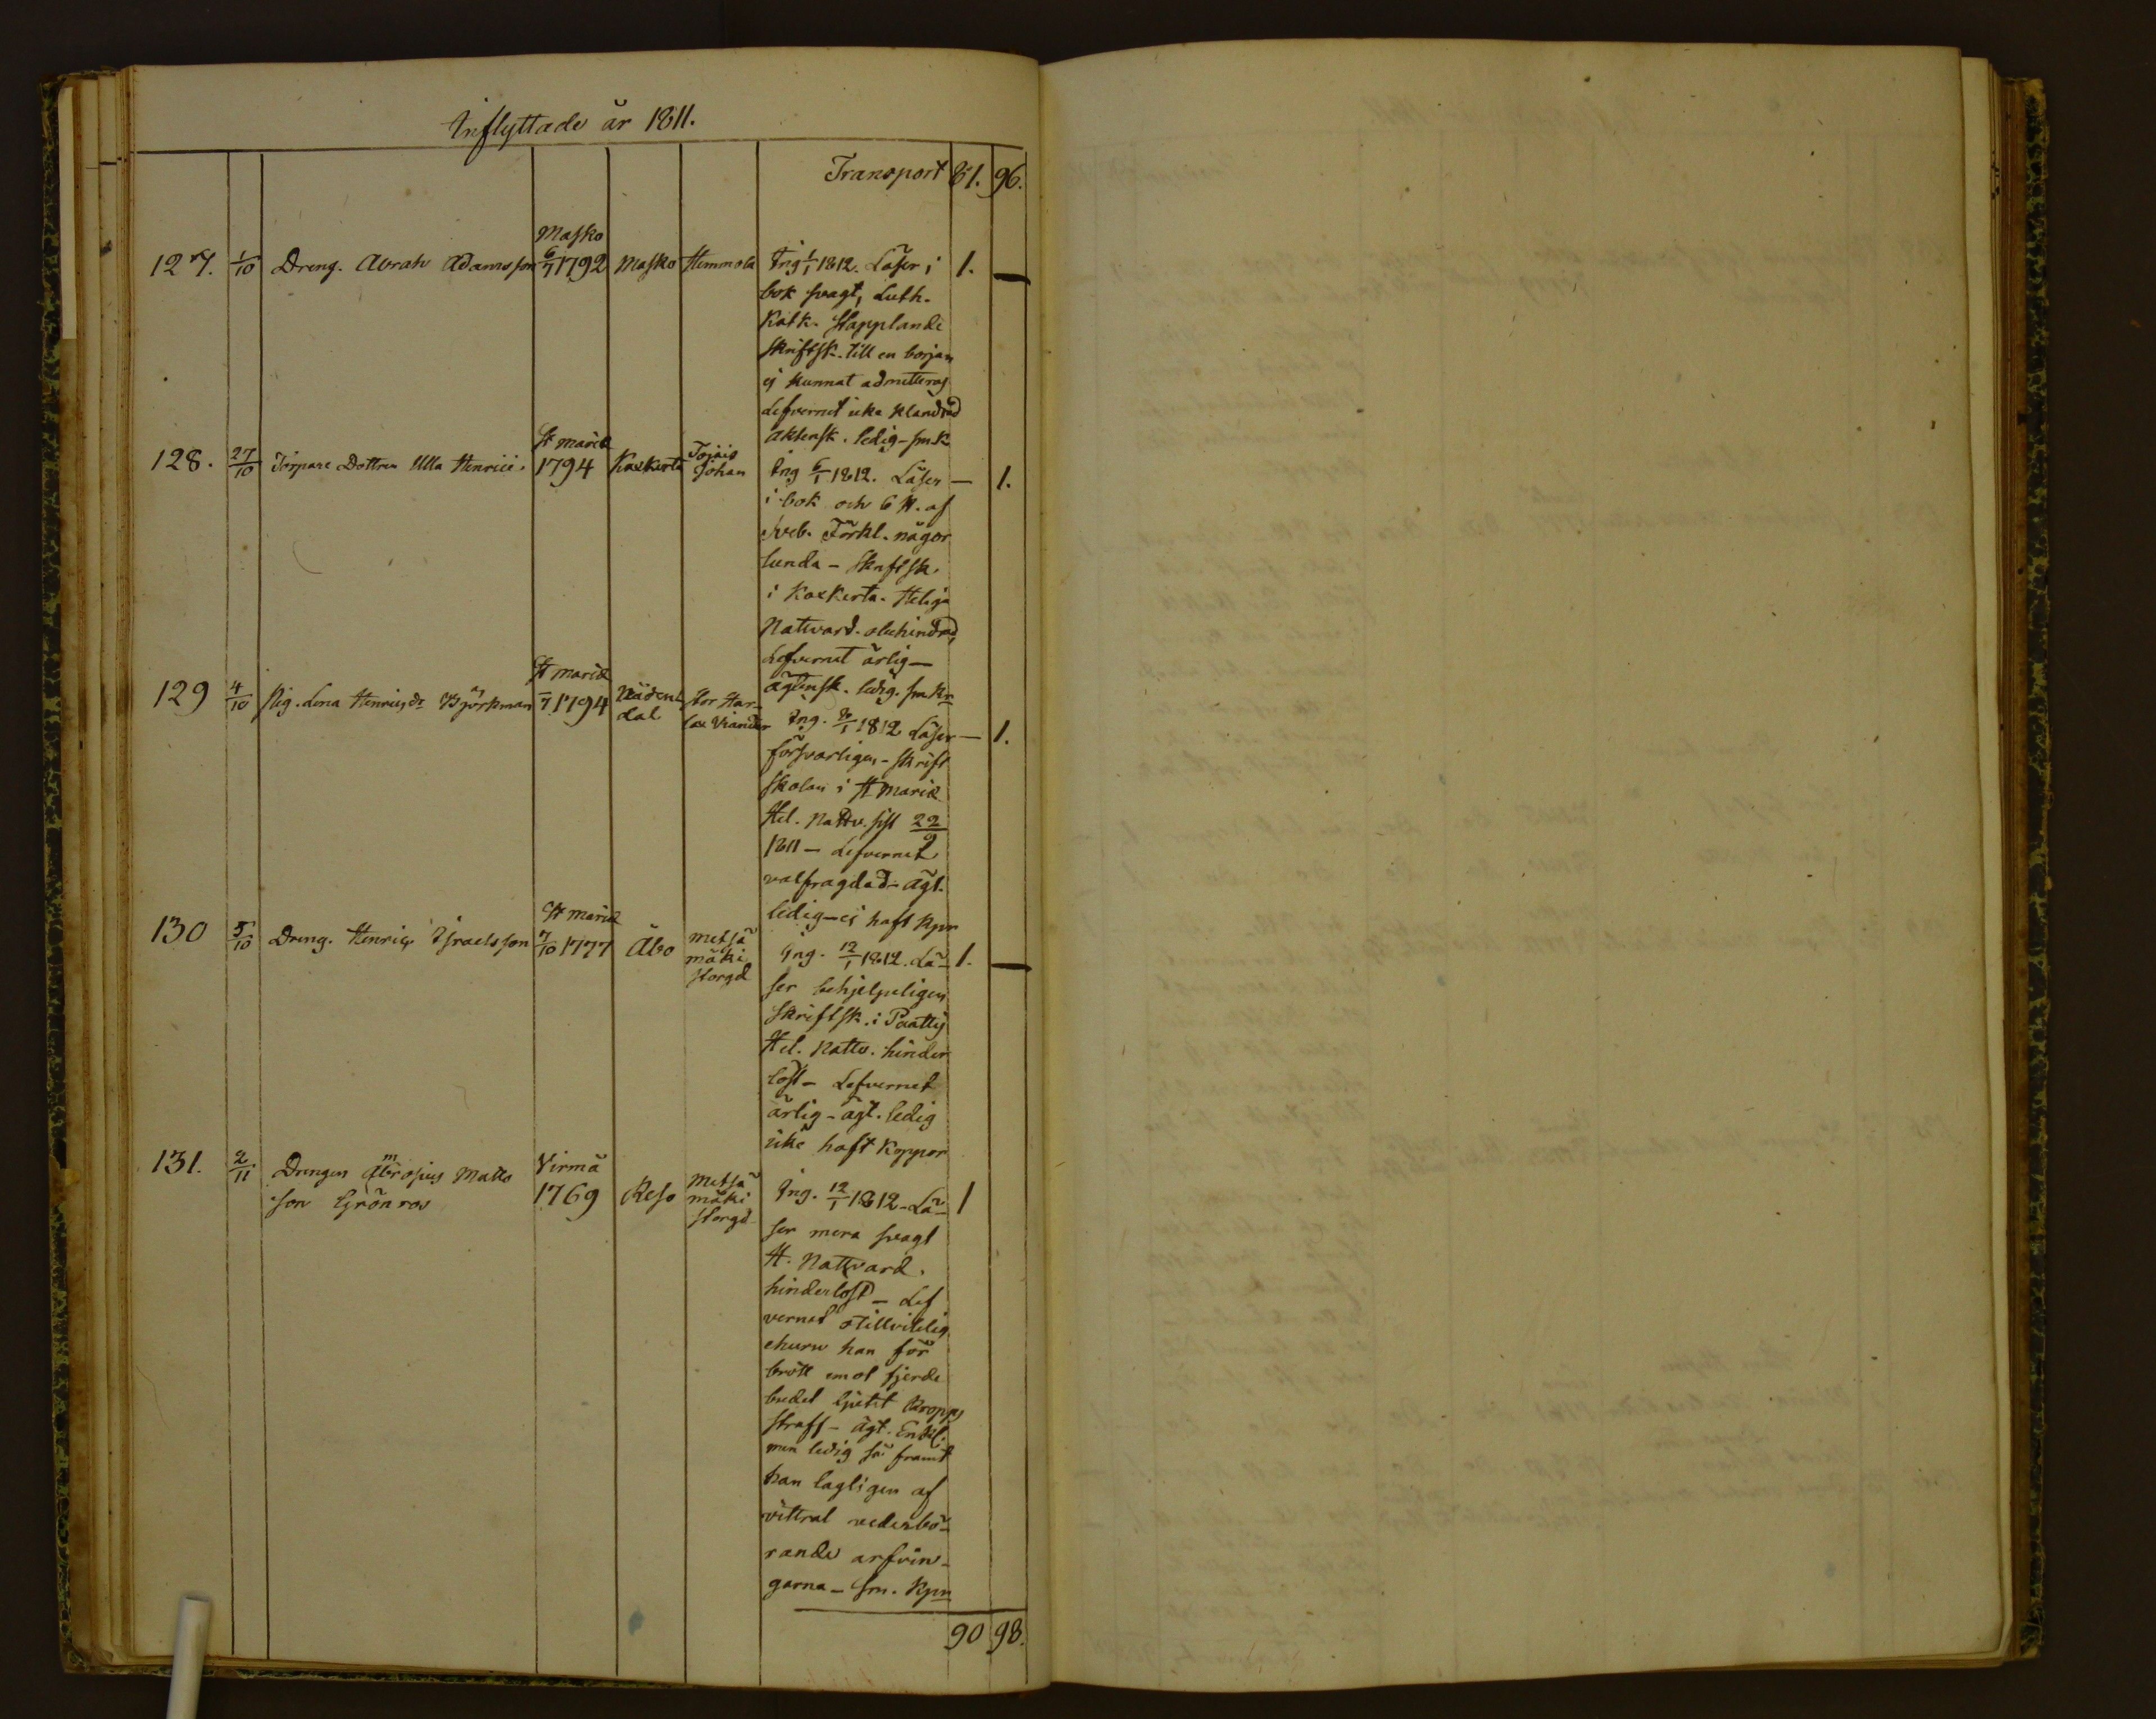 Inflyttade år 1811.
Transport 81. 96.
127. 1/10 Dreng. Abrah Adamsson Masko 6/7 1792 Masko Hemmola Ing 1/1 1812. Läser i 1. —
bok svagt, Luth.
Katk. stapplande
skriftsk. till en början
ej kunnat admitteras
Lefvernet icke klandrad
aktensk. ledig - sm. K
128. 27/10 Torpare Dottren Ulla Henric: St Mariæ 1794 Kaxkerta Johan Ing 6/1 1812. Läser — 1.
i bok och 6 H. af
Sveb. Förkl. någor
lunda - skriftsk.
i Kaxkerta. Heliga
Nattvard. obehindrad,
Lefvernet ärlig —
Ägtensk. ledig. sm. Kr
129 4/10 Pig. Lena Henricsdr Björkman St Mariæ 1794 Nådendal Ing. 8/1 1812 Läser — 1.
försvarligen, - skrift
skolan i St Mariæ
Hel. Nattv. sist 22/9
1811 — Lefvernet
valfragdad - ägt.
ledig - ej haft Kpr
130 5/10 Dreng. Henric Israelsson St Mariæ 7/10 1777 Åbo Metsämäki storgd Ing. 12/1 1812. Lä- 1. —
ser behjelpeligen
skriftsk. i Paattis
Hel. Nattv. hinder
löst - Lefvernet
ärlig - ägt. ledig
icke haft koppor
131. 2/11 Drengen Ambrosius Matts Virmå 1769 Reso Metsämäki storgd Ing. 12/1 1812 - Lä- 1
son Grönros
ser mera svagt
H. Nattvard.
hinderlöst - Lef
vernet otillvitelig
ehuru han för
brott emot fjerde
budet lidit kropps
straff - Ägt. Enkl.
men ledig så framt
han lagligen af
vittrat vederbö-
rande arfvin-
garna - sm. Kpr
90 98.